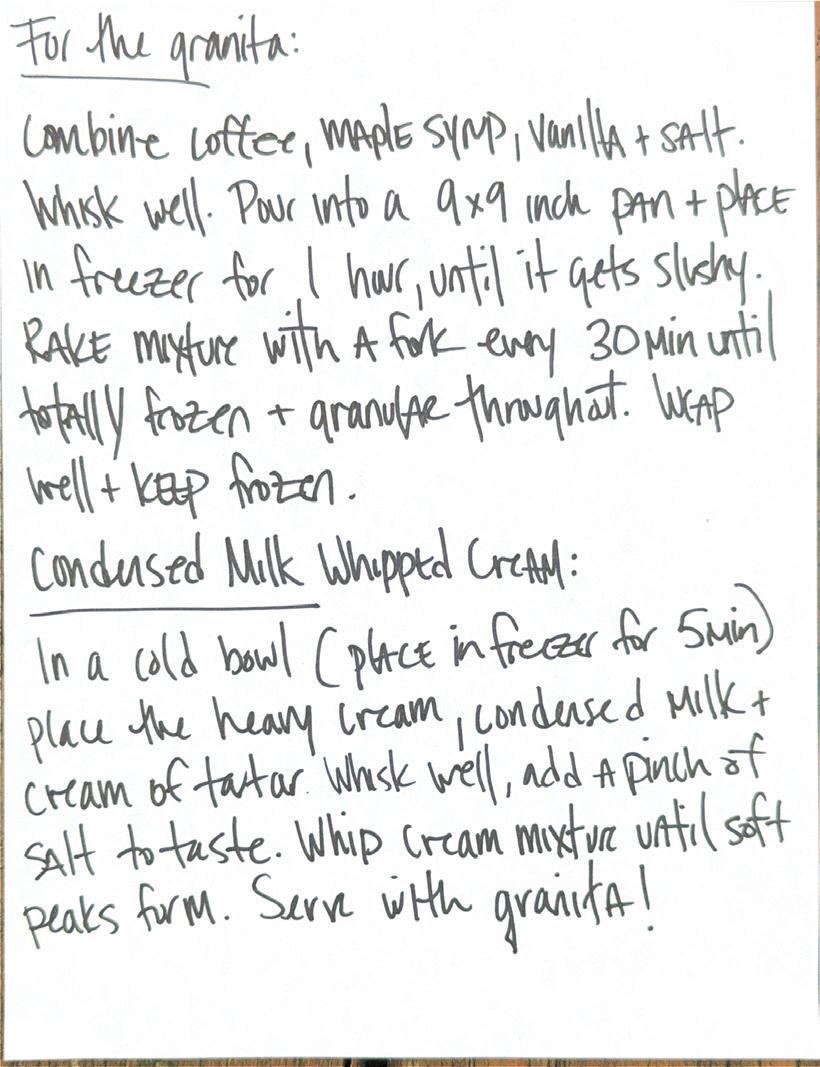 For the granita:
Combine coffee, maple syrup, vanilla + salt.
Whisk well. Pour into a 9x9 inch pan + place
in freezer for 1 hour, until it gets slushy.
Rake mixture with a fork every 30 min until
totally frozen + granular throughout. Wrap
well + keep frozen.
Condensed Milk Whipped Cream:
In a cold bowl (place in freezer for 5 min)
place the heavy cream, condensed milk +
cream of tartar. Whisk well, add a pinch of
salt to taste. Whip cream mixture until soft
peaks form. Serve with granita!